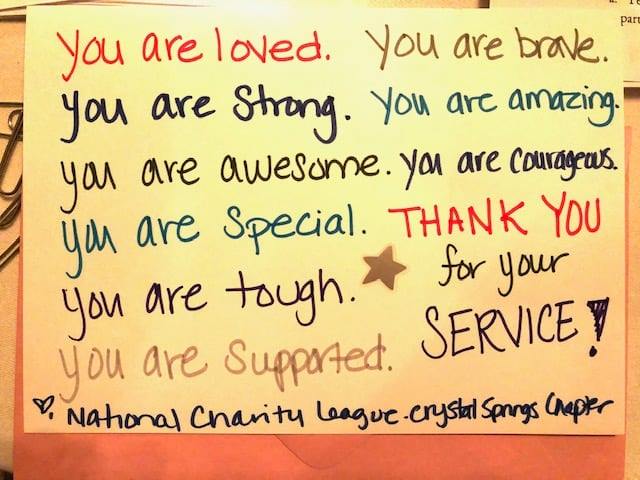 You are loved. You are brave.
you are Strong. You are amazing.
you are awesome. you are Courageous.
you are Special. THANK YOU
you are tough. for your
you are Supported. SERVICE!
National Charity League - Crystal Springs Chapter
part